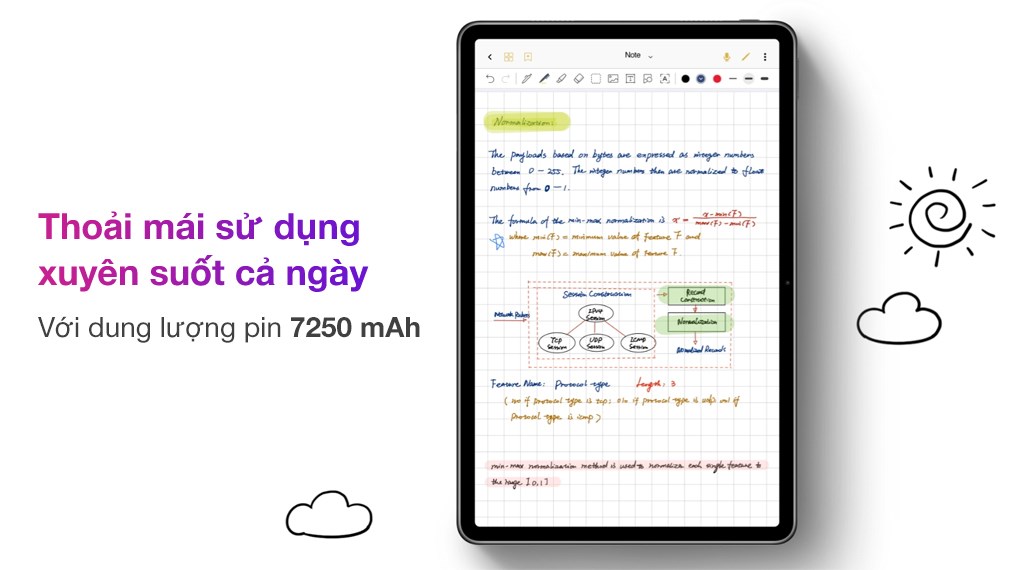 Thoải mái sử dụng
xuyên suốt cả ngày
Với dung lượng pin 7250 mAh
Note
Normalization:
The payloads based on bytes are expressed as integer numbers
between 0 - 255. The integer numbers then are normalized to float
numbers from 0 - 1.
The formula of the min-max normalization is x = x - min(F) / max(F) - min(F)
where min(F) = minimum value of feature F and
max(F) = maximum value of feature F.
Session Construction
Record
Construction
IPup
Session
Normalization
TCP
Session
UDP
Session
ICMP
Session
Normalized Records
Feature Name: Protocol type Length: 3
if protocol type is tcp; 010 if protocol type is udp; 001 if
protocol type is icmp)
min-max normalization method is used to normalize each single feature to
the range [0,1]